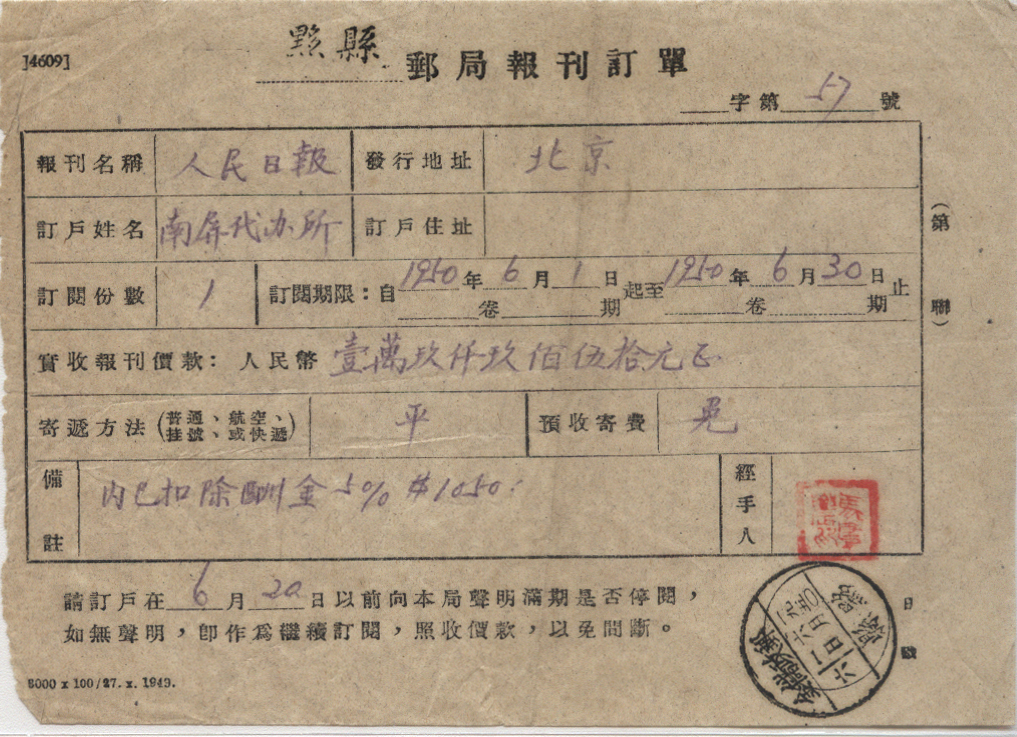 [4609]
黟縣 郵局報刊訂單
字第 57 號
報刊名稱 人民日報 發行地址 北京
訂戶姓名 南屏代办所 訂戶住址
訂閱份數 1 訂閱期限：自 1950 年 6 月 1 日 卷 期 起至 1950 年 6 月 30 日 卷 期 止
（第 聯）
實收報刊價款：人民幣 壹萬玖仟玖佰伍拾元正
寄遞方法（普通、航空、掛號、或快遞） 平 預收寄費 免
備註 内已扣除酬金5% $1050. 經手人
請訂戶在 6 月 20 日以前向本局聲明滿期是否停閱，
如無聲明，卽作爲繼續訂閱，照收價款，以免間斷。
日
戳
5000 x 100/27. x. 1949.